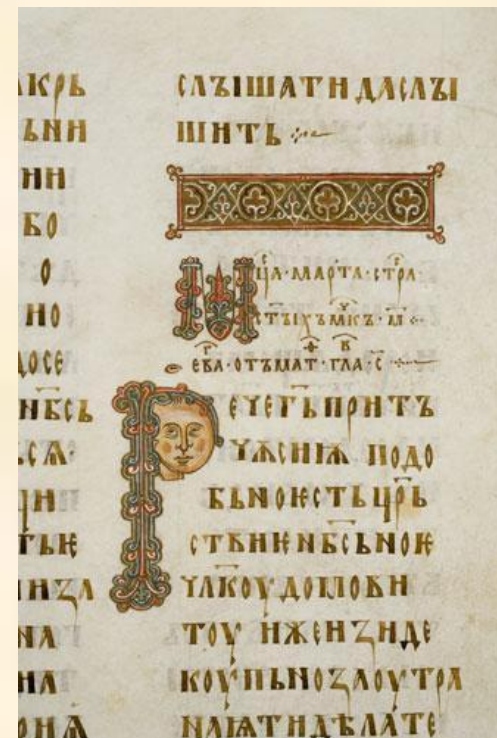 крь
ьни
ни
бо
о
но
досе
нб҃сь
ьсѧ·
ци
тьѥ
инꙁа
на
на
онѧ
слъішатидаслъі
шить
мц҃ѧ·марта·стра
стъіхъмкъ·м
ева·отъмат·гла·с
речегь҃притъ
чѫсиѭ подо
бьноѥстьцр҃ь
ствиѥнб҃сьноѥ
чл҃коудомови
тоу ижеиꙁиде
коупьноꙁаоутра
наѩтидѣлате